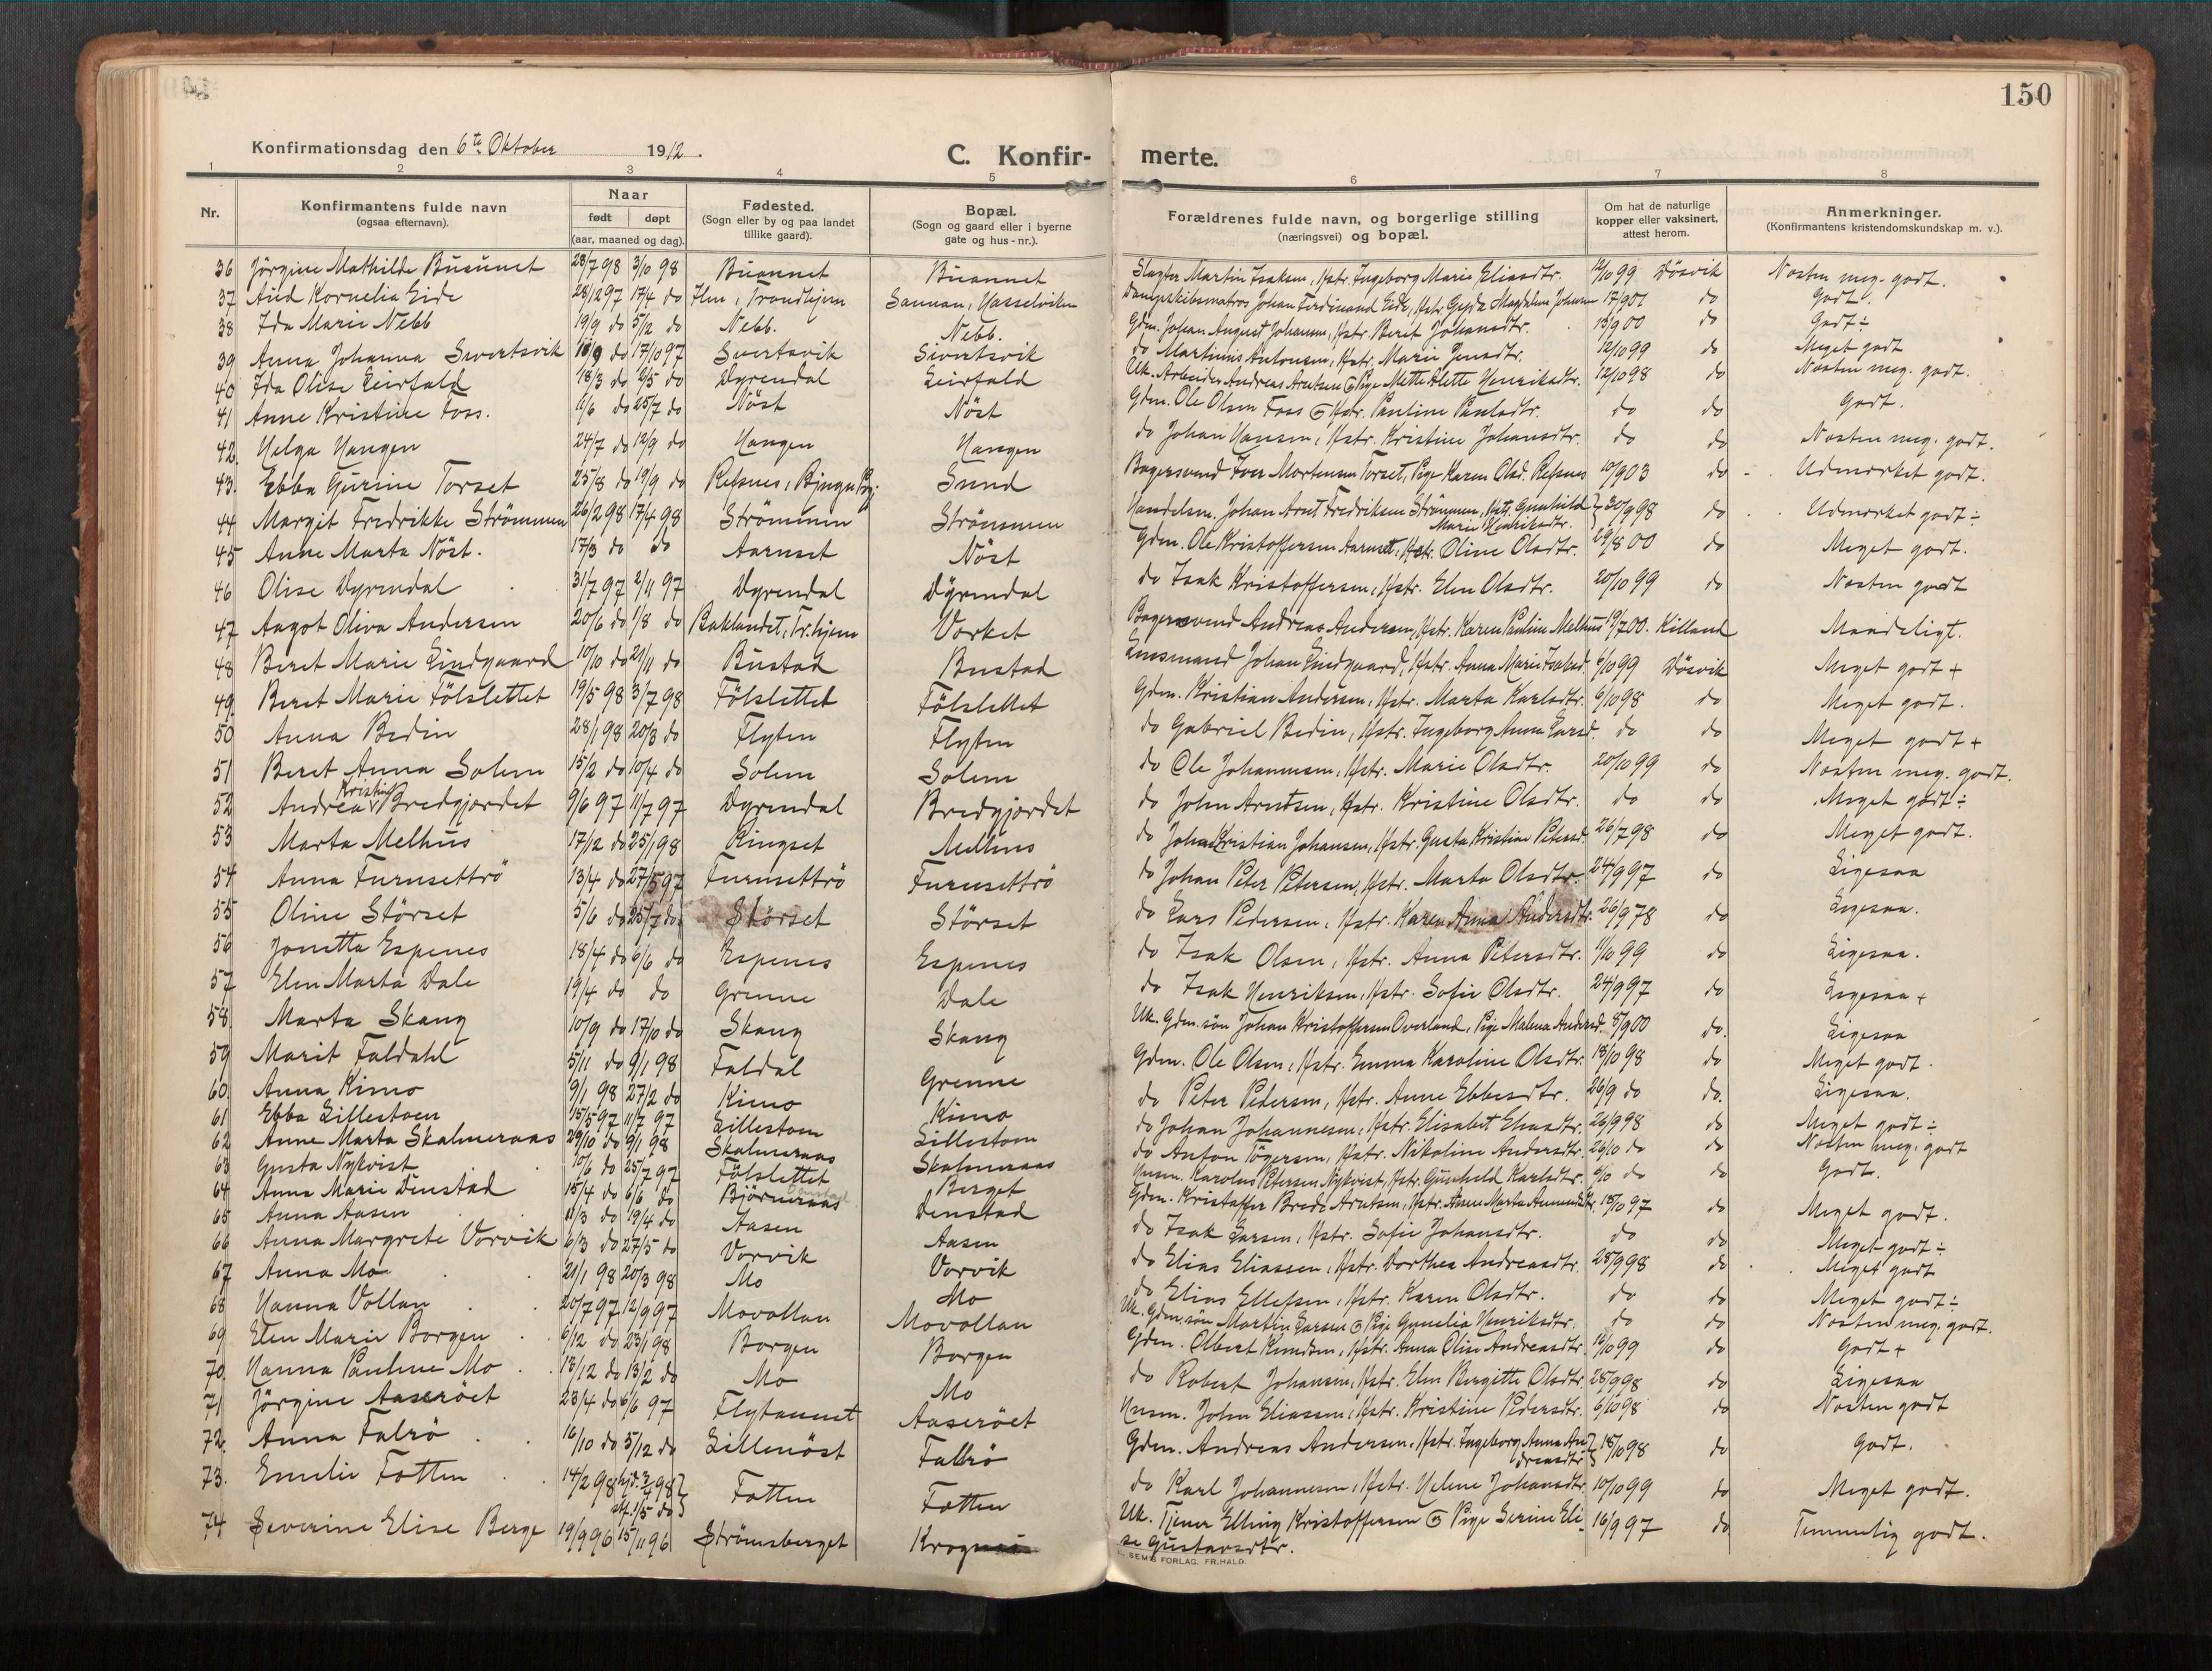 150
Konfirmationsdag den 6te Oktober 1912.
C. Konfirmerte.
1 2 3 4 5 6 7 8
Nr.
Konfirmantens fulde navn (ogsaa efternavn).
Naar født døpt (aar, maaned og dag).
Fødested. (Sogn eller by og paa landet tillike gaard).
Bopæl. (Sogn og gaard eller i byerne gate og hus-nr.).
Forældrenes fulde navn, og borgerlige stilling (næringsvei) og bopæl.
Om hat de naturlige kopper eller vaksinert, attest herom.
Anmerkninger. (Konfirmantens kristendomskundskap m. v.).
36 Jörgine Mathilde Buaunet 28/7 98 3/10 98 Buaunet Buaunet Slagter Martin Isaksen, Hstr. Ingeborg Marie Eliasdtr. 12/10 99 Dösvik Næsten meg. godt.
37 Aud Kornelia Eide 28/12 97 17/4 do Ilen, Trondhjem Sannan, Hasselviken Dampskibsmatros Johan Ferdinand Eide, Hstr. Gyda Magdalene Johnsen 17/9 01 do Godt.
38 Ida Marie Nebb 19/9 do 5/12 do Nebb. Nebb. Gdm. Johan August Johansen, Hstr. Beret Johansdtr. 13/9 00 do Godt ÷
39 Anna Johanna Sivertsvik 10/9 do 17/10 97 Sivertsvik Sivertsvik do Martinus Antonsen, Hstr. Marie Jensdtr. 12/10 99 do Meget godt
40 Ida Olise Leirfald 18/3 do 2/5 do Dyrendal Leirfald Uk. Arbeider Andreas Arntsen og Pige Mette Alette Henriksdtr. 12/10 98 do Næsten meg. godt.
41 Anne Kristine Foss. 11/6 do 25/7 do Nöst Nöst Gdm. Ole Olsen Foss og Hstr. Pauline Paulsdtr. do do Godt.
42. Helga Hangen 24/7 do 12/9 do Hangen Hangen do Johan Hansen, Hstr. Kristine Johansdtr. do do Næsten meg. godt.
43. Ebba Gurine Torset 25/8 do 19/9 do Refsnes, Bjugn Sund Bagersvend Iver Mortensen Torset, Pige Karen Olsd. Refsnes 10/9 03 do Udmærket godt.
44 Margit Fredrikke Strömmen 26/2 98 17/4 98 Strömmen Strömmen Handelsm. Johan Arnt Fredriksen Strömmen, Hstr. Gunhild Marie Henriksdtr. 30/9 98 do Udmærket godt ÷
45 Anne Marta Nöst. 17/3 do do Aarnset Nöst Gdm. Ole Kristoffersen Aarnset, Hstr. Oline Olsdtr. 29/8 00 do Meget godt.
46 Olise Dyrendal 31/7 97 2/11 97 Dyrendal Dyrendal do Isak Kristoffersen, Hstr. Elen Olsdtr. 20/10 99 do Næsten godt
47 Aagot Oliva Andersen 20/6 do 1/8 do Baklandet, Tr.hjem Værket Bagersvend Andreas Andersen, Hstr. Karen Pauline Melhus 19/7 00. Killand Maadeligt.
48 Beret Marie Lindgaard 10/10 do 21/11 do Bustad Bustad Lensmand Johan Lindgaard, Hstr. Anna Marie Isaksd. 6/10 99 Dösvik Meget godt +
49. Beret Marie Fölslettet 19/5 98 3/7 98 Fölslettet Fölslettet Gdm. Kristian Andersen, Hstr. Marta Karlsdtr. 6/10 98 do Meget godt.
50 Anna Bedin 28/1 98 20/3 do Flyten Flyten do Gabriel Bedin, Hstr. Ingeborg Anna Larsd. do do Meget godt +
51 Beret Anna Solem 15/2 do 10/4 do Solem Solem do Ole Johannesen, Hstr. Marie Olsdtr. 20/10 99 do Næsten meg. godt.
52 Andrea Kristine Bredgjordet 9/6 97 11/7 97 Dyrendal Bredgjordet do John Arntsen, Hstr. Kristine Olsdtr. do do Meget godt ÷
53 Marta Melhus 17/12 do 25/1 98 Ringset Melhus do Johan Kristian Johansen, Hstr. Gusta Kristine Petersd. 26/7 98 do Meget godt.
54 Anna Furusettrö 13/4 do 27/5 97 Furusettrö Furusettrö do Johan Peter Petersen, Hstr. Marta Olsdtr. 24/9 97 do Ligesaa
55 Oline Störset 5/6 do 25/7 do Störset Störset do Lars Pedersen, Hstr. Karen Anna Andersdtr. 26/9 78 do Ligesaa.
56 Jonetta Espenes 18/4 do 6/6 do Espenes Espenes do Isak Olsen, Hstr. Anna Petersdtr. 11/10 99 do Ligesaa.
57 Elen Marta Dale 19/4 do do Grenne Dale do Isak Henriksen, Hstr. Sofie Olsdtr. 24/9 97 do Ligesaa +
58. Marta Skaug 10/9 do 17/10 do Skaug Skaug Uk. Gdm.sön Johan Kristoffersen Overland, Pige Malena Andersd. 8/9 00 do. Ligesaa
59 Marit Faldahl 5/11 do 9/1 98 Faldal Grenne Gdm. Ole Olsen, Hstr. Emma Karoline Olsdtr. 18/10 98 do Meget godt.
60. Anna Kimo 9/1 98 27/2 do Kimo Kimo do Peter Pedersen, Hstr. Anne Ebbesdtr. 26/9 do do. Ligesaa.
61 Ebba Lillestøen 15/5 97 11/7 97 Lillestøen Lillestøen do Johan Johannesen, Hstr. Elisabet Eliasdtr. 26/9 98 do Meget godt ÷
62 Anne Marta Skalmeraas 29/10 do 9/1 98 Skalmeraas Skalmeraas do Anton Tögersen, Hstr. Nikoline Andersdtr. 26/10 do do Næsten meg. godt
63 Gusta Nykvist 10/6 do 25/7 97 Fölslettet Berget Husm. Karolus Petersen Nykvist, Hstr. Gunhild Karlsdtr. 6/10 do do Godt.
64 Anna Marie Denstad 15/4 do 6/6 do Björneraas Denstad Denstad Gdm. Kristoffer Brede Arntsen, Hstr. Anne Marta 18/10 97 do Meget godt.
65 Anna Aasen 11/3 do 19/4 do Aasen Aasen do Isak Larsen, Hstr. Sofie Johansdtr. do do Meget godt ÷
66 Anna Margrete Vorvik 6/3 do 27/5 do Vorvik Vorvik do Elias Eliassen, Hstr. Dorthea Andreasdtr. 28/9 98 do Meget godt
67 Anna Mo 21/1 98 20/3 98 Mo Mo do Elias Ellefsen, Hstr. Karen Olsdtr. do do Meget godt ÷
68 Hanna Vollan 20/7 97 12/9 97 Movollan Movollan Uk. Gdm.sön Martin Larsen og Pige Gunelia Henriksdtr. do do Næsten meg. godt.
69 Elen Marie Borgen 6/12 do 23/1 98 Borgen Borgen Gdm. Olbert Knudsen, Hstr. Anna Olise Andreasdtr. 16/10 99 do Godt +
70. Hanna Pauline Mo 13/12 do 13/2 do Mo Mo do Robert Johansen, Hstr. Elen Birgitte Olsdtr. 28/9 98 do Ligesaa
71 Jörgine Aaseröet 23/4 do 6/6 97 Flytaunet Aaseröet Husm. John Eliassen, Hstr. Kristine Pedersdtr. 6/10 98 do Næsten godt
72. Anna Falrö 16/10 do 5/12 do Lillenöst Falrö Gdm. Andreas Andersen, Hstr. Ingeborg Anna Andreasdtr. 18/10 98 do Godt.
73. Emelie Fatten 14/2 98 hjd. 3/4 98 stf. 1/5 do Fatten Fatten do Karl Johannesen, Hstr. Helene Johansdtr. 10/10 99 do Meget godt.
74 Severine Elise Berge 19/9 96 15/11 96 Strömsberget Krog Uk. Tjener Elling Kristoffersen og Pige Serine Elise Gustavsdtr. 16/9 97 do Temmelig godt.
SEM'S FORLAG, FR.HALD.